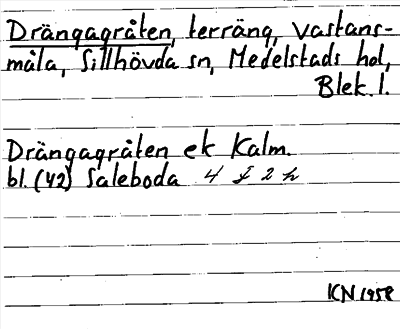 Drängagråten, terräng, Västans-
måla, Sillhövda sn, Medelstads hd,
Blek. l.
Drängagråten ek Kalm.
bl. (42) Saleboda 4 f 2 h
KN 1958